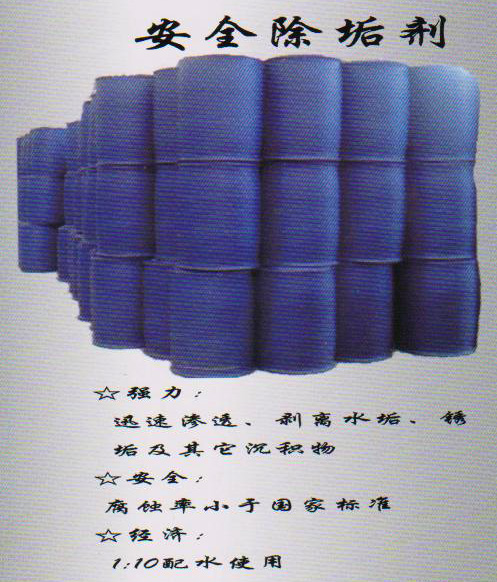 安全除垢剂
☆强力：
迅速渗透、剥离水垢、锈
垢及其它沉积物
☆安全：
腐蚀率小于国家标准
☆经济：
1:10配水使用